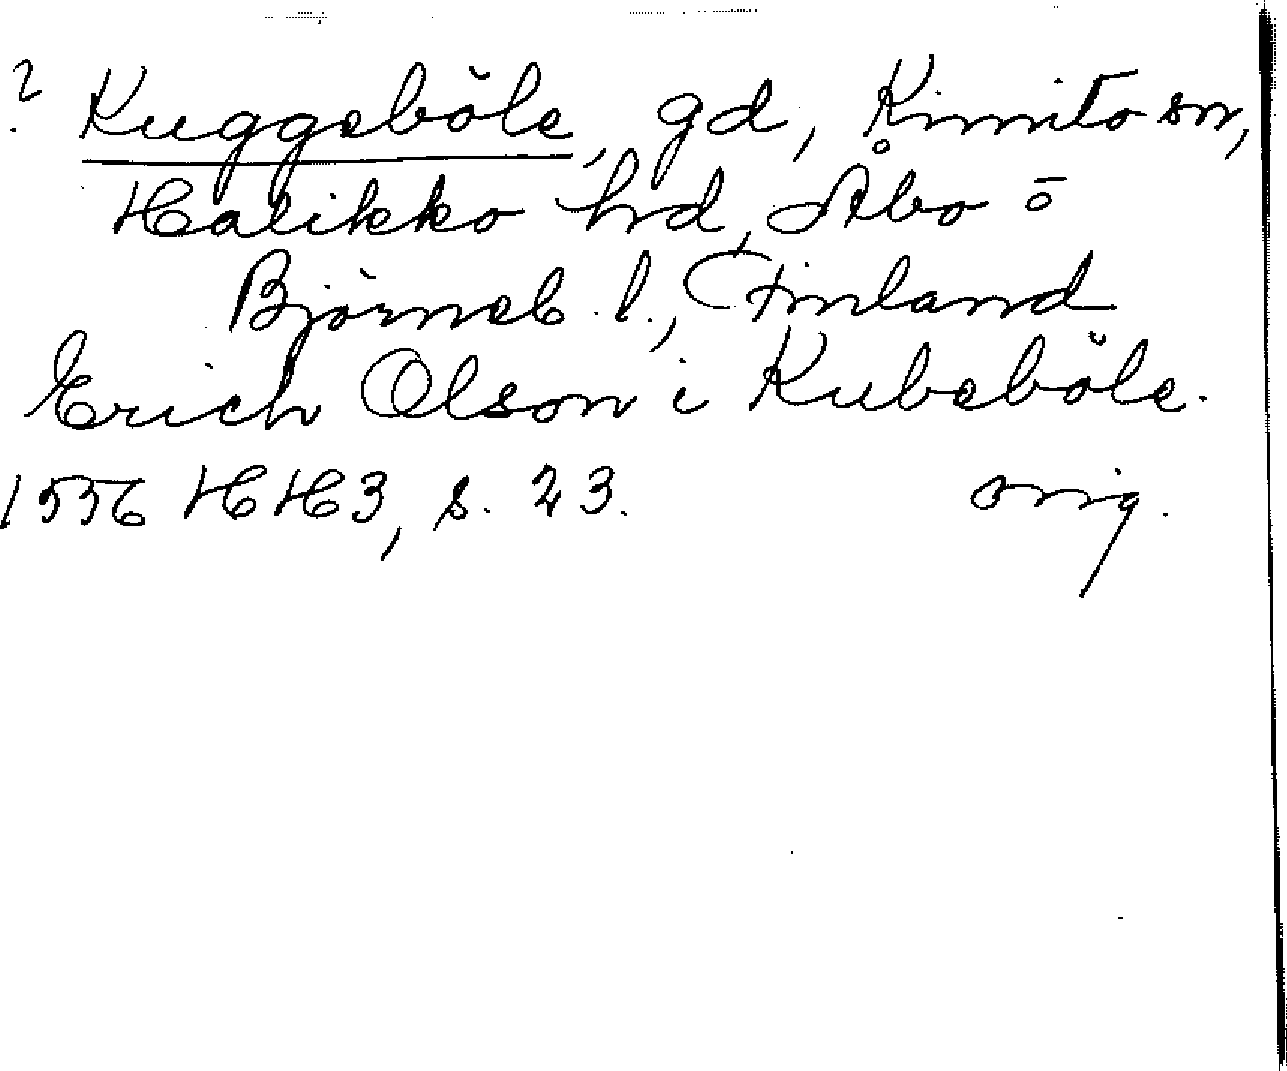 ? Kuggeböle, gd, Kimito sn,
Halikko hd, Åbo o
Björneb. l., Finland
Erich Olson i Kubeböle.
1556 HH3, s. 23. orig.